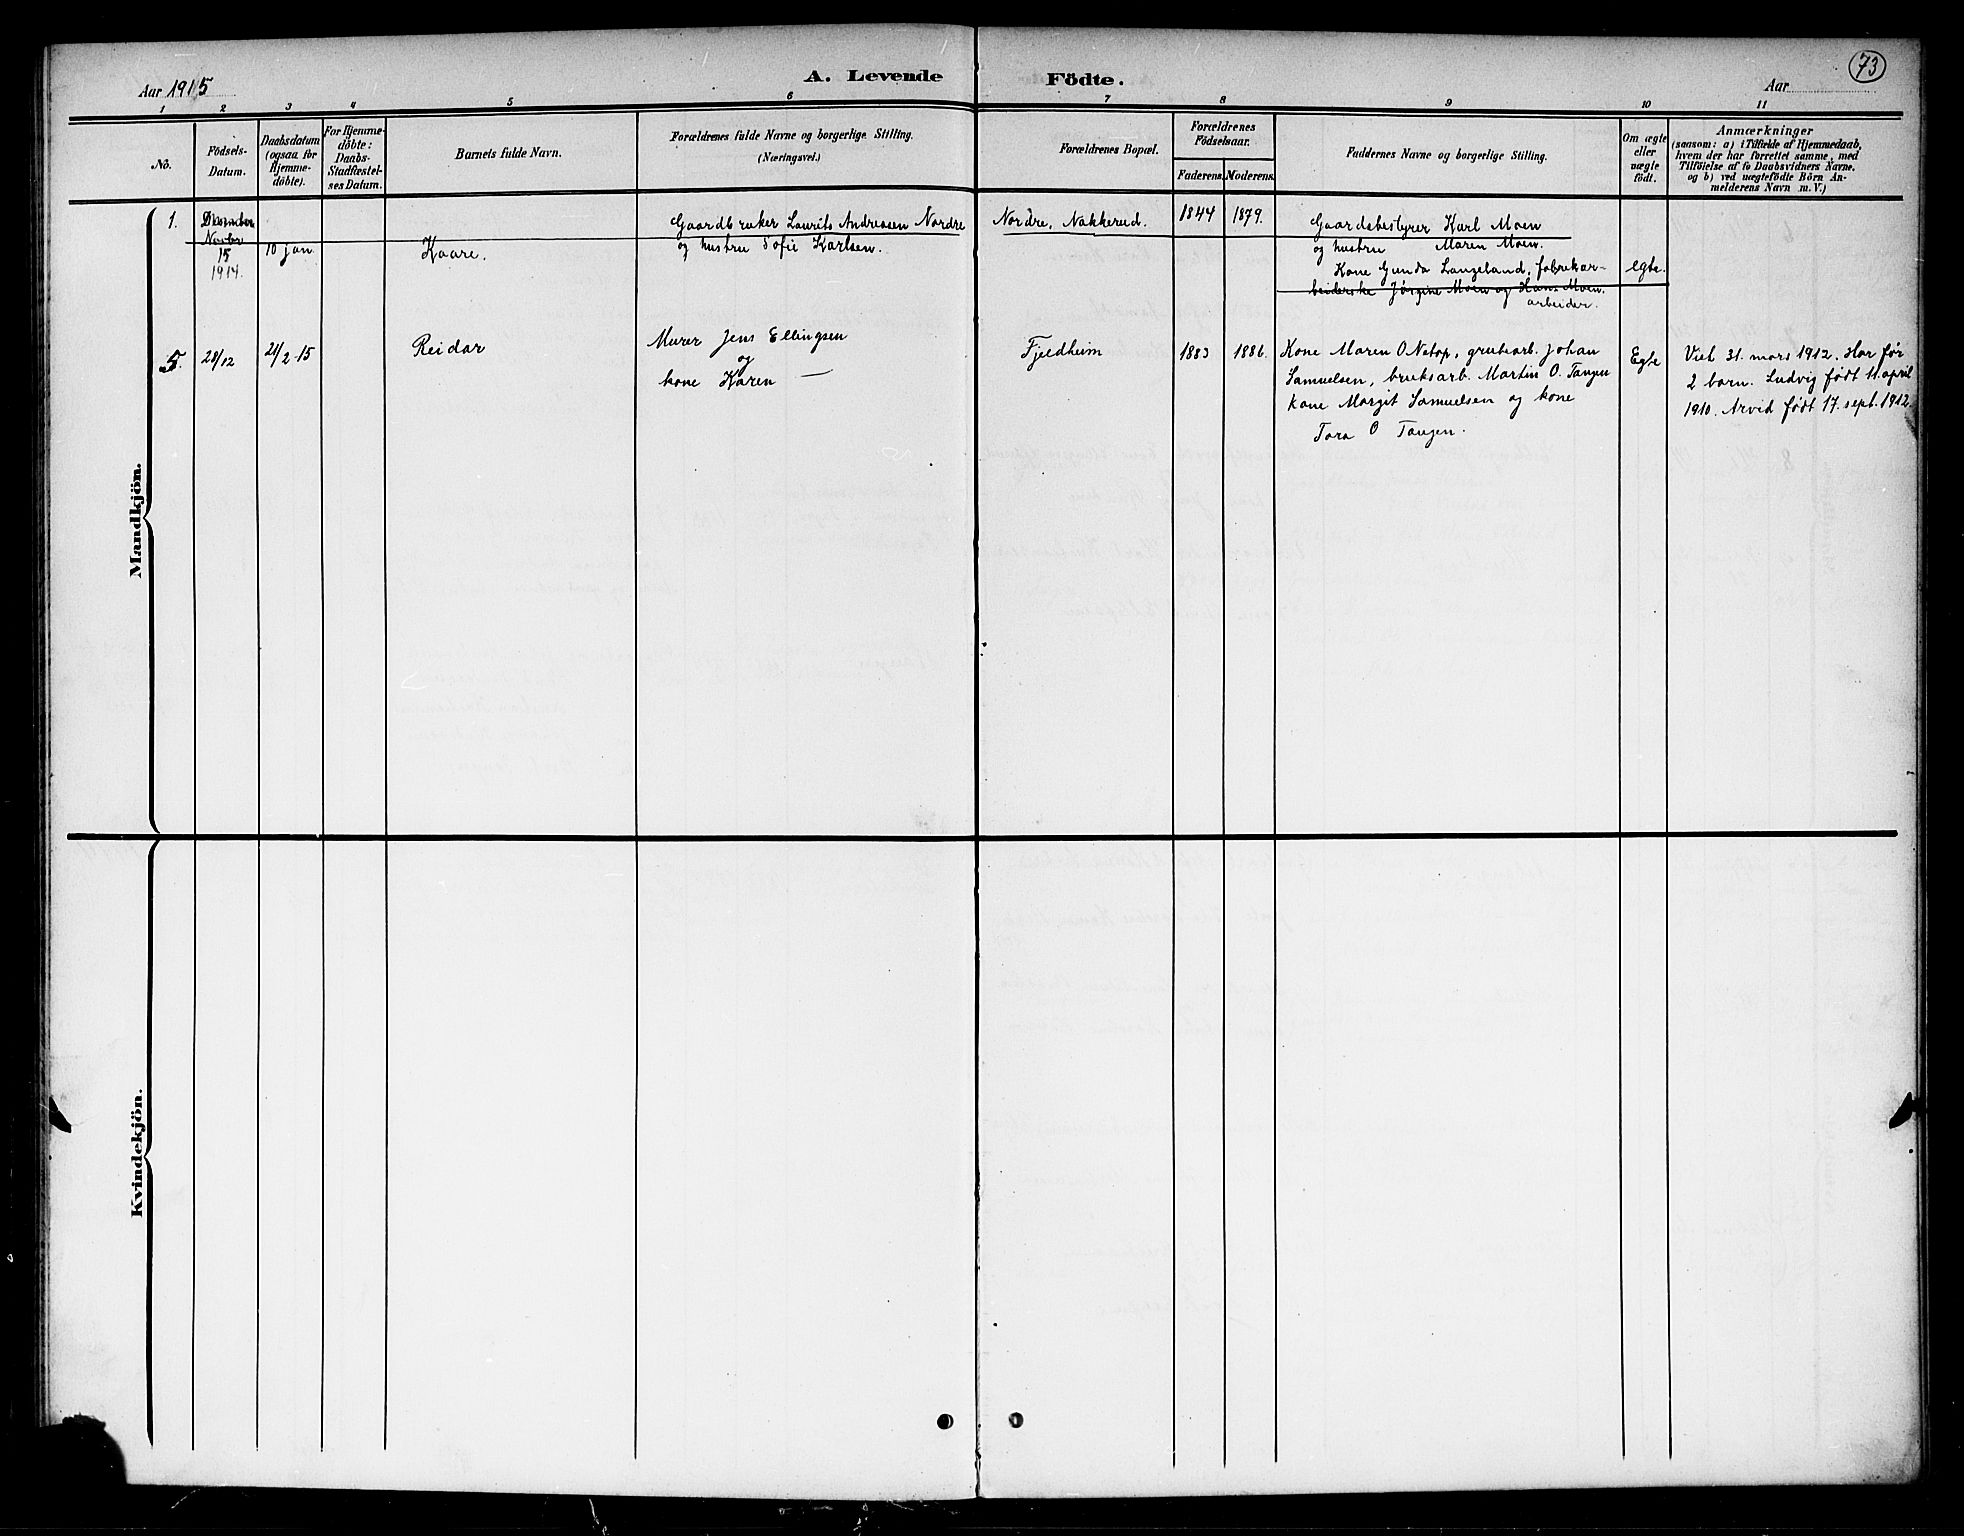 Aar 1915
A. Levende Födte.
Aar
73
1 2 3 4 5 6 7 8 9 10 11
No.
Födsels-
Datum.
Daabsdatum
(ogsaa for
Hjemme-
döbte).
For Hjemme-
döbte:
Daabs-
Stadfæstel-
ses Datum.
Barnets fulde Navn.
Forældrenes fulde Navne og borgerlige Stilling.
(Næringsvei.)
Forældrenes Bopæl.
Forældrenes
Födselsaar.
Faderens. Moderens.
Faddernes Navne og borgerlige Stilling.
Om ægte
eller
uægte
födt.
Anmærkninger
(saasom: a) i Tilfælde af Hjemmedaab,
hvem der har forrettet samme, med
Tilföielse af to Daabsvidners Navne.
og b) ved uægtefödte Börn An-
melderens Navn m. V.)
Mandkjön.
1.
December
Novbr
15
1914.
10 jan.
Kaare.
Gaardbruker Laurits Andreasen Nordre
og hustru Sofie Karlsen.
Nordre, Nakkerud.
1844
1879.
Gaardsbestyrer Karl Moen
og hustru Maren Moen.
Kone Gunda Langeland, fabrikar-
beiderske Jørgine Moen og Hans Moen.
arbeider.
egte.
5.
28/12
21/2-15
Reidar
Murer Jens Ellingsen
og
kone Karen —
Fjeldheim
1883
1886.
Kone Maren O Netop, grubearb. Johan
Samuelsen, bruksarb. Martin O. Tangen
kone Margit Samuelsen og kone
Tora O Tangen.
Egte
Viet 31. mars 1912. Har før
2 barn. Ludvig født 11. april
1910. Arvid født 17. sept. 1912.
Kvindekjön.